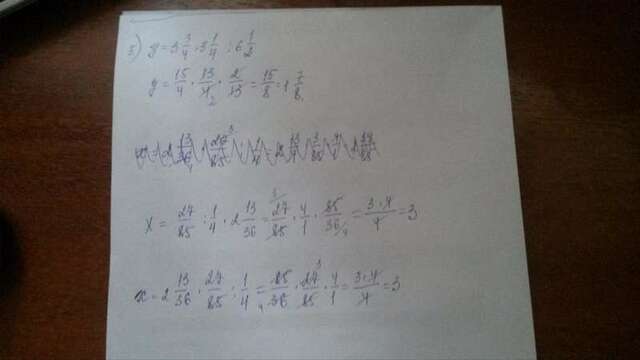 3) y = 3 3/4 · 3 1/4 : 6 1/2
y = 15/4 · 13/4 2 · 2/13 = 15/8 = 1 7/8
x = 27/85 : 1/4 · 2 13/36 = 27 3/85 · 4/1 · 85/36 4 = 3·4/4 = 3
x = 2 13/36 · 27/85 : 1/4 = 85/36 4 · 27 3/85 · 4/1 = 3·4/4 = 3